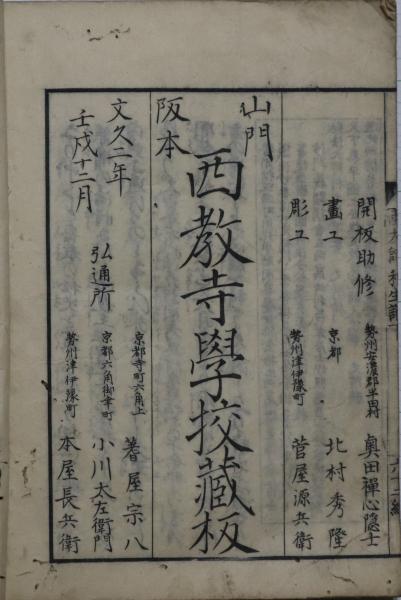 開板助修 勢州安濃郡半田村 奥田禪心隠士
畫工 京都 北村秀隆
彫工 勢州津伊豫町 菅屋源兵衛
山門
阪本
西教寺學挍藏板
文久二年
壬戌十二月
弘通所
京都寺町六角上 蓍屋宗八
京都六角御幸町 小川太左衛門
勢州津伊豫町 本屋長兵衛